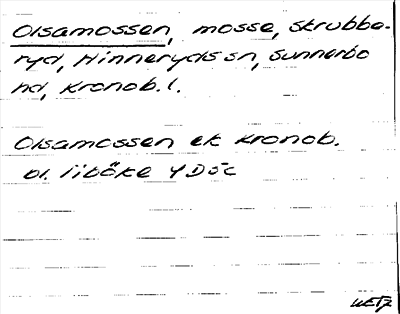 Olsamossen, mosse, Skrubbe-
ryd, Hinneryds sn, Sunnerbo
hd, Kronob. l.
Olsamossen ek Kronob.
bl. Tiböke 4D5c